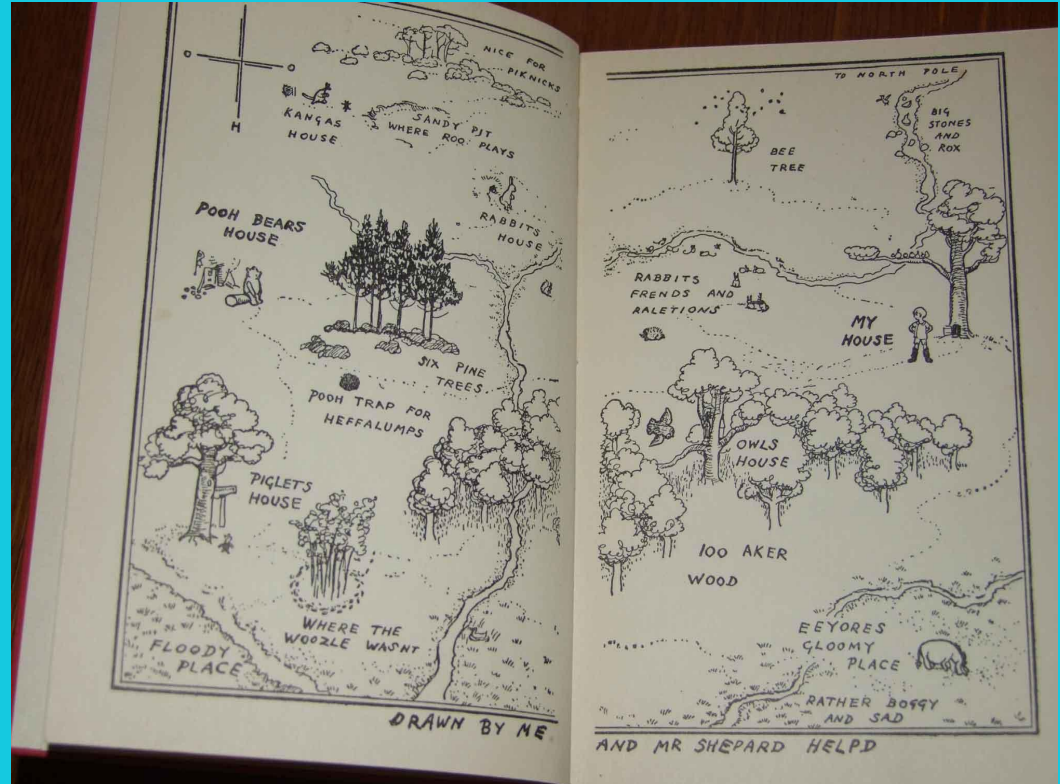 NICE FOR
PIKNICKS
KANGAS
HOUSE
SANDY PIT
WHERE ROO PLAYS
H
O
O
POOH BEARS
HOUSE
RABBITS
HOUSE
SIX PINE
TREES
POOH TRAP FOR
HEFFALUMPS
PIGLETS
HOUSE
WHERE THE
WOOZLE WASNT
FLOODY
PLACE
DRAWN BY ME
TO NORTH POLE
BIG
STONES
AND
ROX
BEE
TREE
RABBITS
FRENDS AND
RALETIONS
MY
HOUSE
OWLS
HOUSE
100 AKER
WOOD
EEYORES
GLOOMY
PLACE
RATHER BOGGY
AND SAD
AND MR SHEPARD HELPD